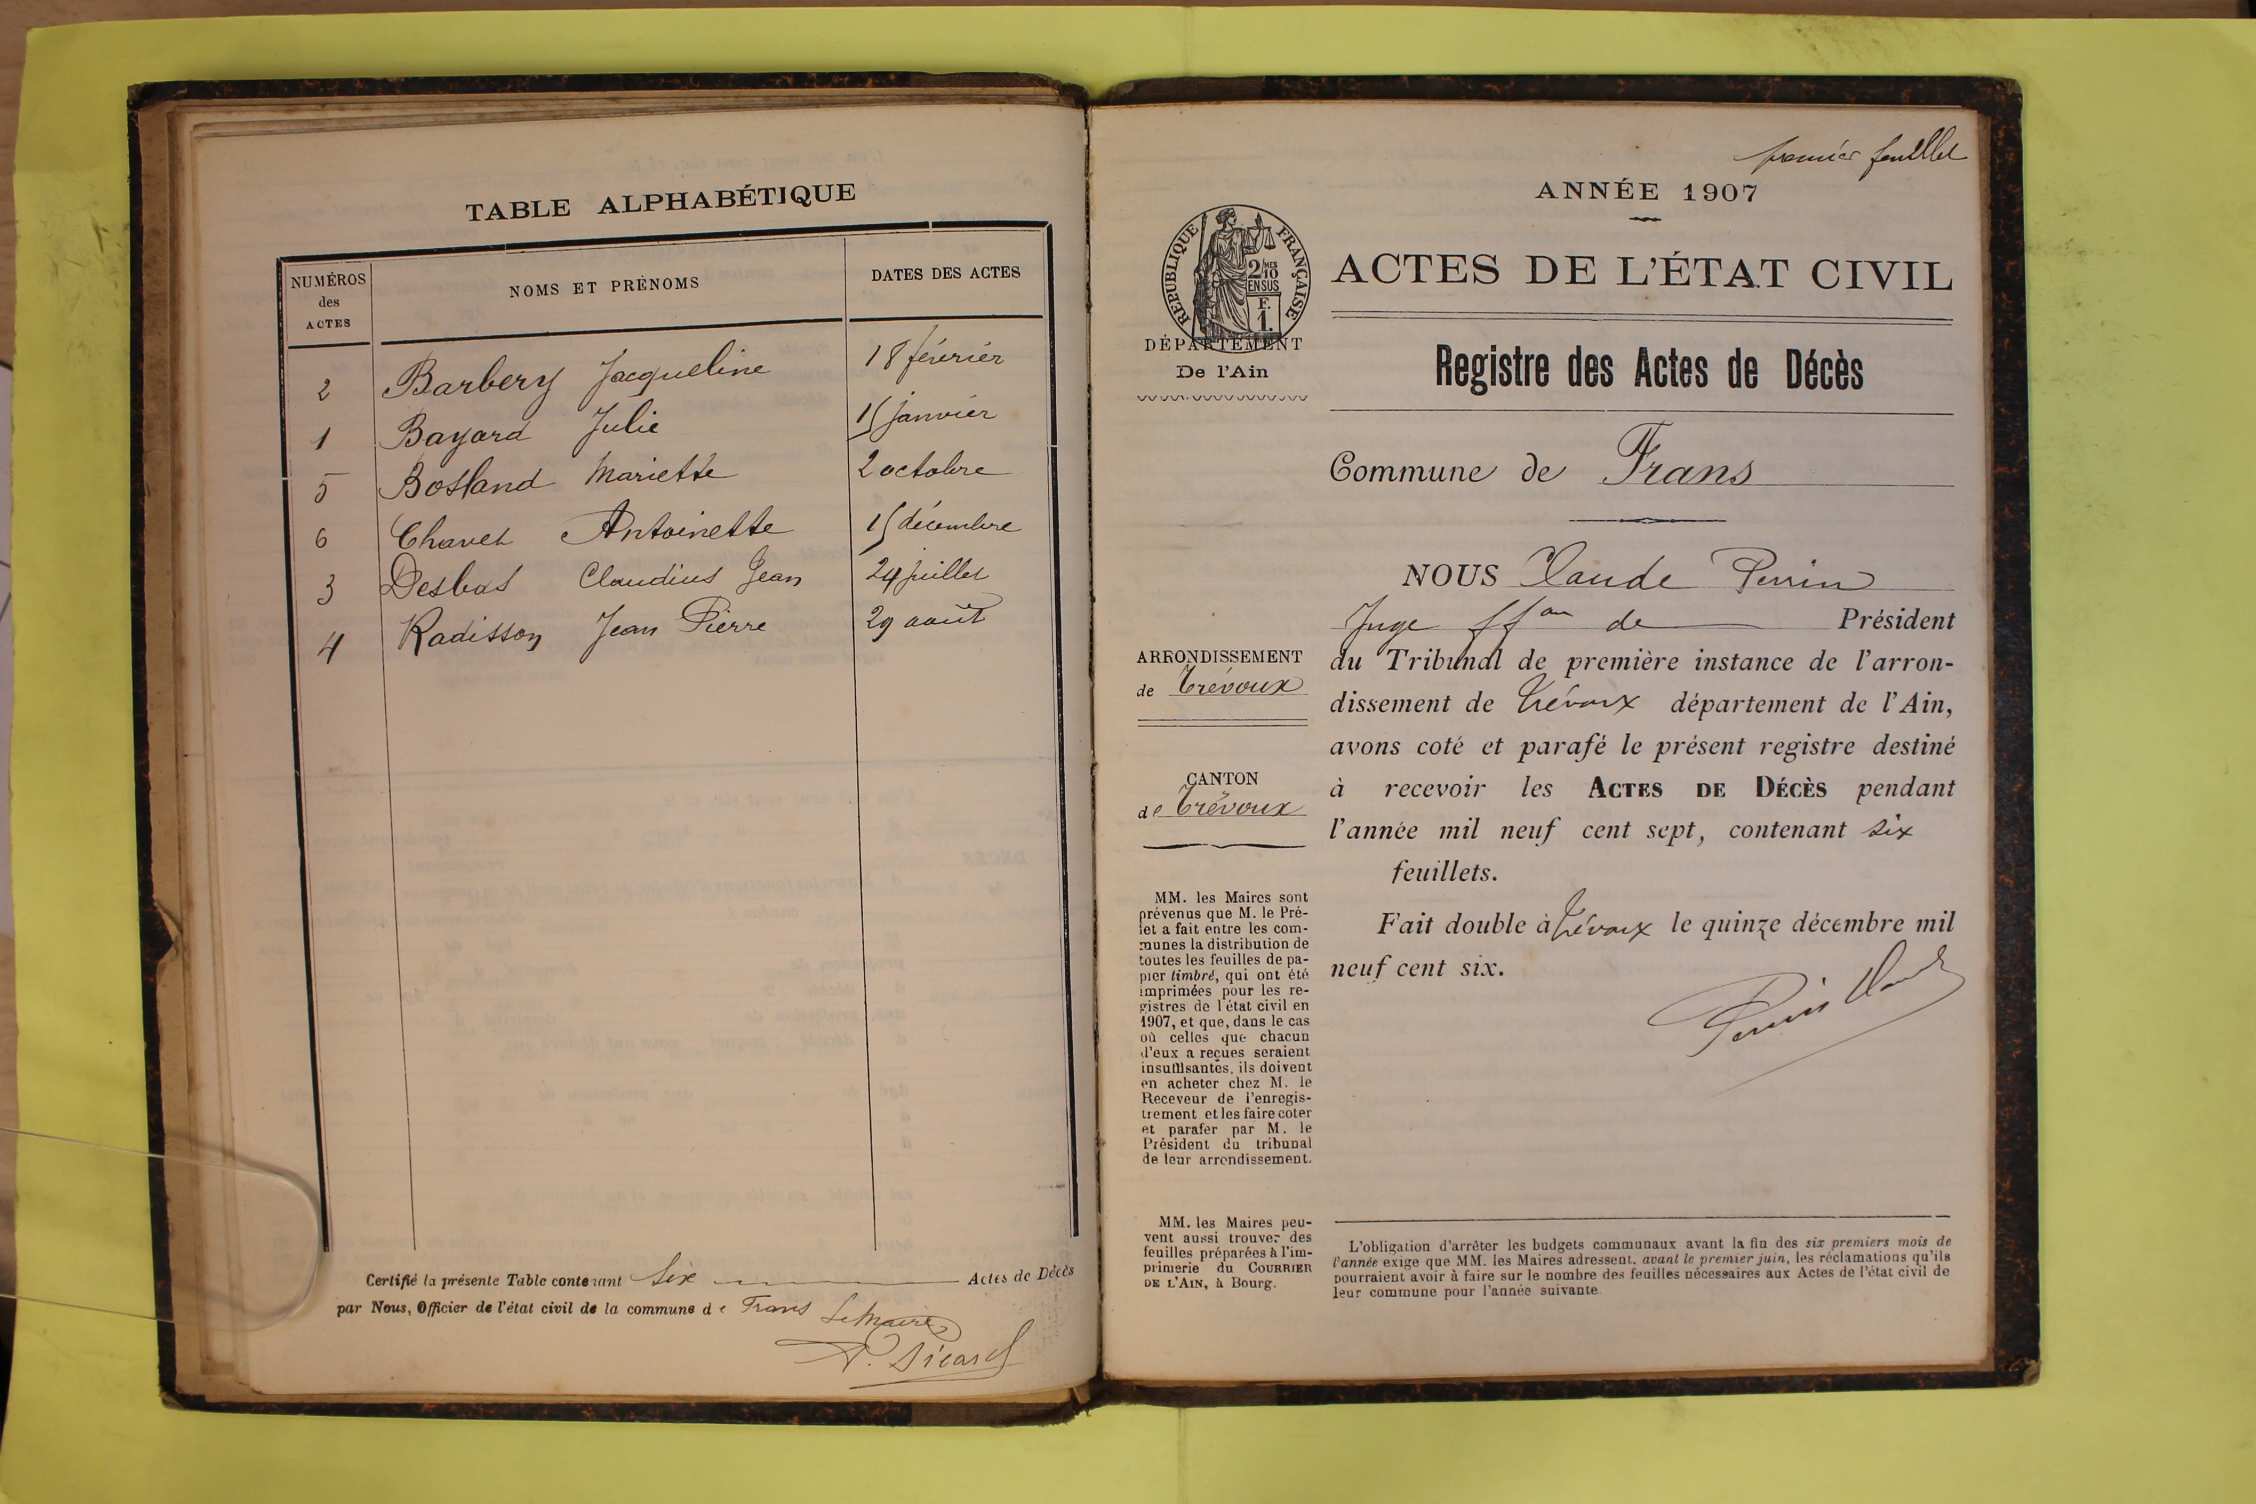 TABLE ALPHABÉTIQUE
NUMÉROS
des
ACTES
NOMS ET PRÉNOMS
DATES DES ACTES
2 Barbery Jacqueline 18 février
1 Bayard Julie 15 janvier
5 Bosland Mariette 2 octobre
6 Chavet Antoinette 15 décembre
3 Desbos Claudius Jean 24 juillet
4 Radisson Jean Pierre 29 août
Certifié la présente Table contenant Six Actes de Décès
par Nous, Officier de l'état civil de la commune de Frans Le Maire
P. Picard
premier feuillet
ANNÉE 1907
RÉPUBLIQUE FRANÇAISE
2/10 MES
EN SUS
F.
1.
DÉPARTEMENT
De l'Ain
ACTES DE L'ÉTAT CIVIL
Registre des Actes de Décès
Commune de Frans
NOUS Claude Perrin
Juge ffon de Président
du Tribunal de première instance de l'arron-
dissement de Trévoux département de l'Ain,
avons coté et parafé le présent registre destiné
à recevoir les ACTES DE DÉCÈS pendant
l'année mil neuf cent sept, contenant six
feuillets.
Fait double à Trévoux le quinze décembre mil
neuf cent six.
Perrin Claude
ARRONDISSEMENT
de Trévoux
CANTON
de Trévoux
MM. les Maires sont
prévenus que M. le Pré-
fet a fait entre les com-
munes la distribution de
toutes les feuilles de pa-
pier timbré, qui ont été
imprimées pour les re-
gistres de l'état civil en
1907, et que, dans le cas
où celles que chacun
d'eux a reçues seraient
insuffisantes, ils doivent
en acheter chez M. le
Receveur de l'enregis-
trement et les faire coter
et parafer par M. le
Président du tribunal
de leur arrondissement.
MM. les Maires peu-
vent aussi trouver des
feuilles préparées à l'im-
primerie du COURRIER
DE L'AIN, à Bourg.
L'obligation d'arrêter les budgets communaux avant la fin des six premiers mois de
l'année exige que MM. les Maires adressent, avant le premier juin, les réclamations qu'ils
pourraient avoir à faire sur le nombre des feuilles nécessaires aux Actes de l'état civil de
leur commune pour l'année suivante.